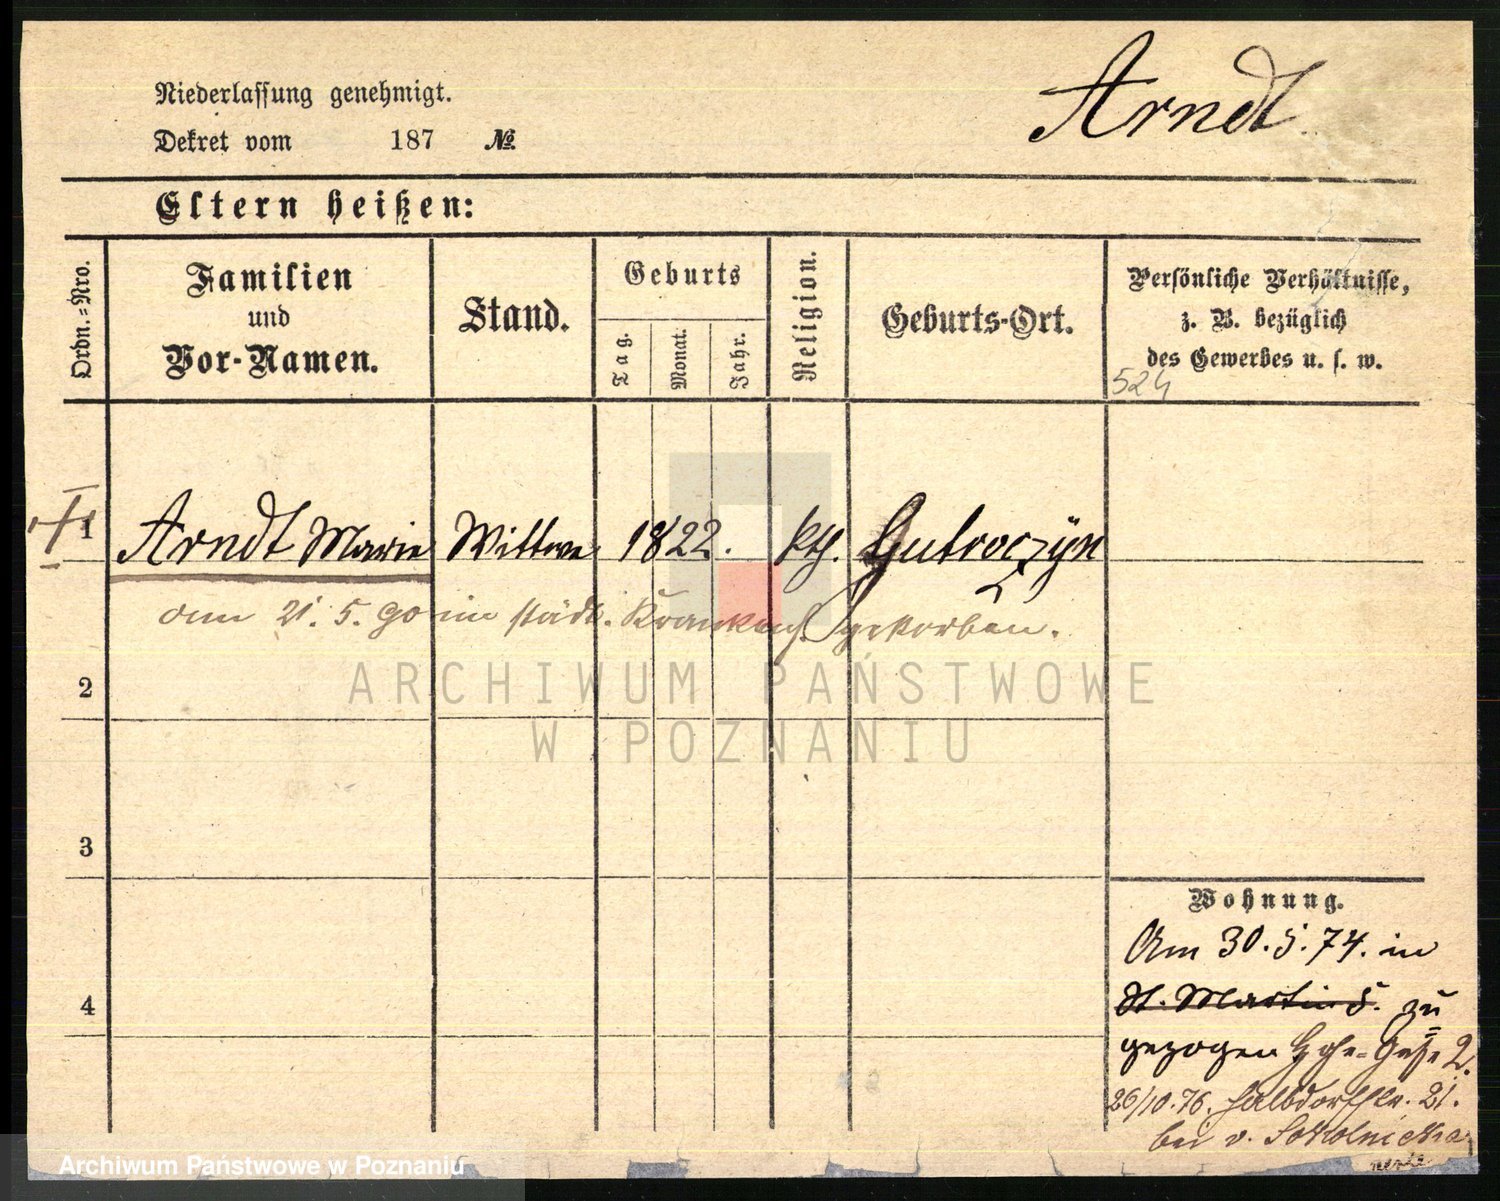 Arndt
Niederlassung genehmigt.
Dekret vom 187 №
Eltern heißen:
Ordn.-Nro.
Familien
und
Vor-Namen.
Stand.
Geburts
Tag.
Monat.
Jahr.
Religion.
Geburts-Ort.
Persönliche Verhältnisse,
z. B. bezüglich
des Gewerbes u. s. w.
524
1 Arndt Marie Wittwe 1822. kth. Gutroczyn
am 21. 5. 90 im städt. Krankenh. gestorben.
2
3
4
Wohnung.
Am 30. 5. 74. in
St. Martin 5. zu
gezogen 2.
26/10. 76. Halbdorfstr. 21.
bei v. Sokolnicka
ARCHIWUM PAŃSTWOWE
W POZNANIU
Archiwum Państwowe w Poznaniu